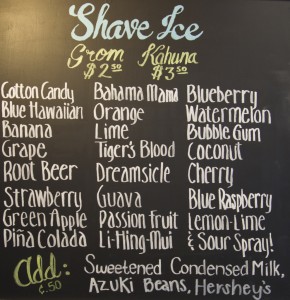 Shave Ice
Grom Kahuna
$2.50 $3.50
Cotton Candy Bahama Mama Blueberry
Blue Hawaiian Orange Watermelon
Banana Lime Bubble Gum
Grape Tiger's Blood Coconut
Root Beer Dreamsicle Cherry
Strawberry Guava Blue Raspberry
Green Apple Passion fruit Lemon-Lime
Piña Colada Li-Hing-Mui & Sour Spray!
Add: Sweetened Condensed Milk,
¢.50 Azuki Beans, Hershey's